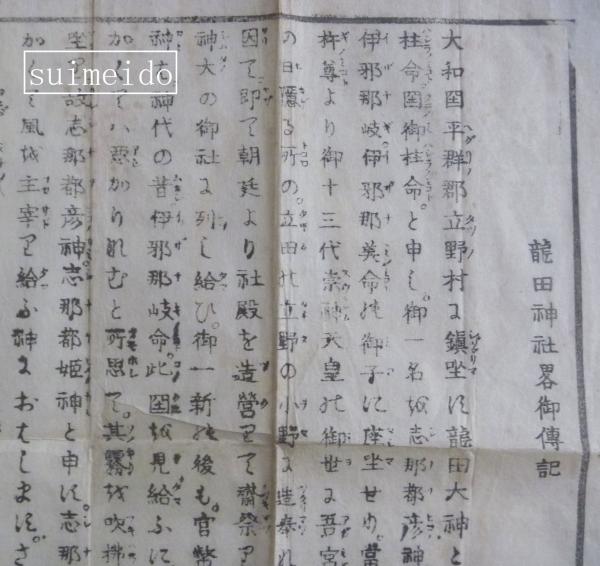 suimeido
龍田神社畧御傳記
大和国平群郡立野村に鎮坐す龍田大神と
柱命国御柱命と申し御一名を志那都彦神
伊邪那岐伊邪那美命の御子に座坐せり。當
杵尊より御十三代崇神天皇の御世に吾宮
の日隠る所の立田の立野の小野に造奉れ
因て即て朝廷より社殿を造營りて齋祭り
神大の御社に列し給ひ。御一新の後も。官幣
神は神代の昔伊邪那岐命。此国を見給ふに
かくてハ悪かりなむと所思て。其霧を吹拂
坐す故志那都彦神。志那都姫神と申す。志那
かくて風を主宰り給ふ神におはします。さ